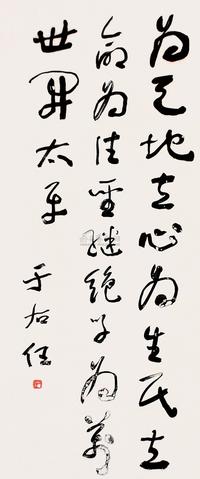 為天地立心為生民立
命為往聖繼絕學為萬
世開太平
于右任